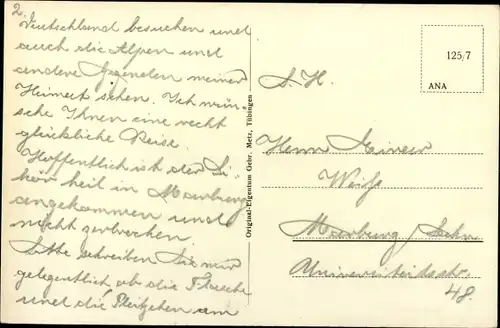 2.
Deutschland besuchen und
auch die Alpen und
andere Gegenden meiner
Heimat sehen. Ich wün-
sche Ihnen eine recht
glückliche Reise.
Hoffentlich ist der Li-
kör heil in Marburg
angekommen und
nicht zerbrochen.
Bitte schreiben Sie mir
gelegentlich, ob die Flasche
und die Plätzchen am
Original-Eigentum Gebr. Metz, Tübingen
125/7
ANA
S. H.
Herrn
Weiss
Marburg/Lahn
Universitätsstr.
48.